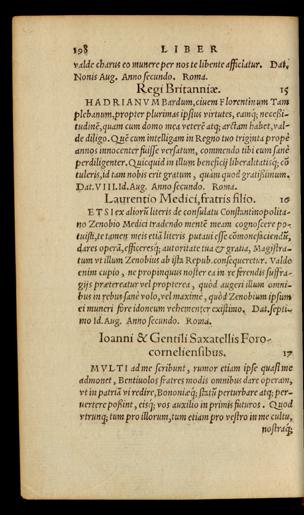 198 LIBER
valde charus eo munere per nos te libente afficiatur. Dat.
Nonis Aug. Anno secundo. Roma.
Regi Britanniæ. 15
HADRIANVM Bardum, ciuem Florentinum Tam
plebanum, propter plurimas ipsius virtutes, eamq; necessi-
tudinē, quam cum domo mea veterē atq; arctam habet, val-
de diligo. Quē cum intelligam in Regno tuo triginta propè
annos innocenter fuisse versatum, commendo tibi eum sanè
perdiligenter. Quicquid in illum beneficij liberalitatisq; cō
tuleris, id tam nobis erit gratum, quàm quod gratissimum.
Dat. VIII. Id. Aug. Anno secundo. Roma.
Laurentio Medici, fratris filio. 16
ETSI ex aliorū literis de consulatu Constantinopolita-
no Zenobio Medici tradendo mentē meam cognoscere po-
tuisti, te tamen meis etiā literis putaui esse cōmonefaciendū,
dares operā, efficeresq; autoritate tua & gratia, Magistra-
tum vt illum Zenobius ab ista Repub. consequeretur. Valdo
enim cupio, ne propinquus noster ea in re ferendis suffra-
gijs prætereatur vel propterea, quòd augeri illum omni-
bus in rebus sanè volo, vel maximè, quòd Zenobium ipsum
ei muneri fore idoneum vehementer existimo. Dat. septi-
mo Id. Aug. Anno secundo. Roma.
Ioanni & Gentili Saxatellis Foro-
corneliensibus. 17
MVLTI ad me scribunt, rumor etiam ipse quasi me
admonet, Bentiuolos fratres modis omnibus dare operam,
vt in patriā vi redire, Bononiæq; statū perturbare atq; per-
uertere possint, eisq; vos auxilio in primis futuros. Quod
vtrunq; tum pro illorum, tum etiam pro vestro in me cultu,
nostraq;